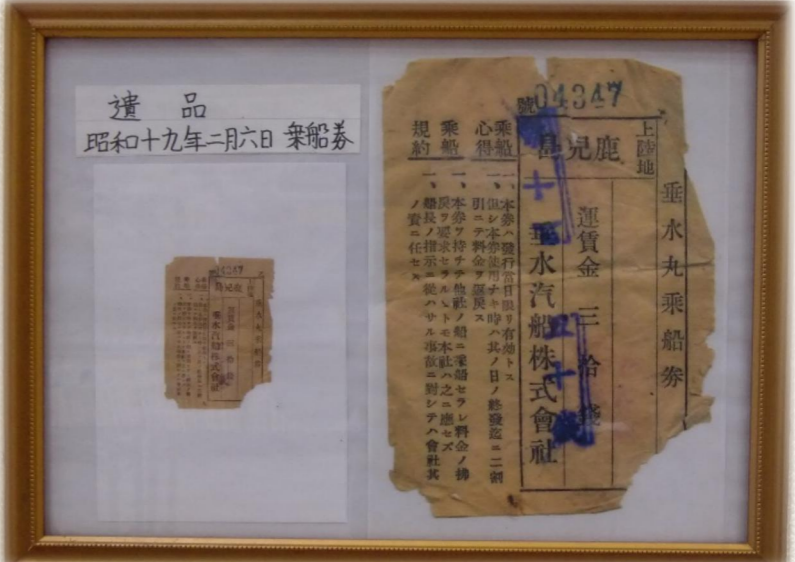 遺品
昭和十九年二月六日 乗船券
號04347
垂水丸乗船券
上陸地
鹿兒島
運賃金 三拾錢
垂水汽船株式會社
乗船心得
一、本券ハ發行當日限リ有効トス
一、但シ本券使用ナキ時ハ其ノ日ノ終發迄ニ二割
引ニテ料金ヲ返戻ス
乗船規約
一、本券ヲ持チテ他社ノ船ニ乗船セラレ料金ノ拂
戻ヲ要求セラルヽトモ本社ハ之ニ應セズ
一、船長ノ指示ニ從ハサル事故ニ對シテハ會社其
ノ責ニ任セス